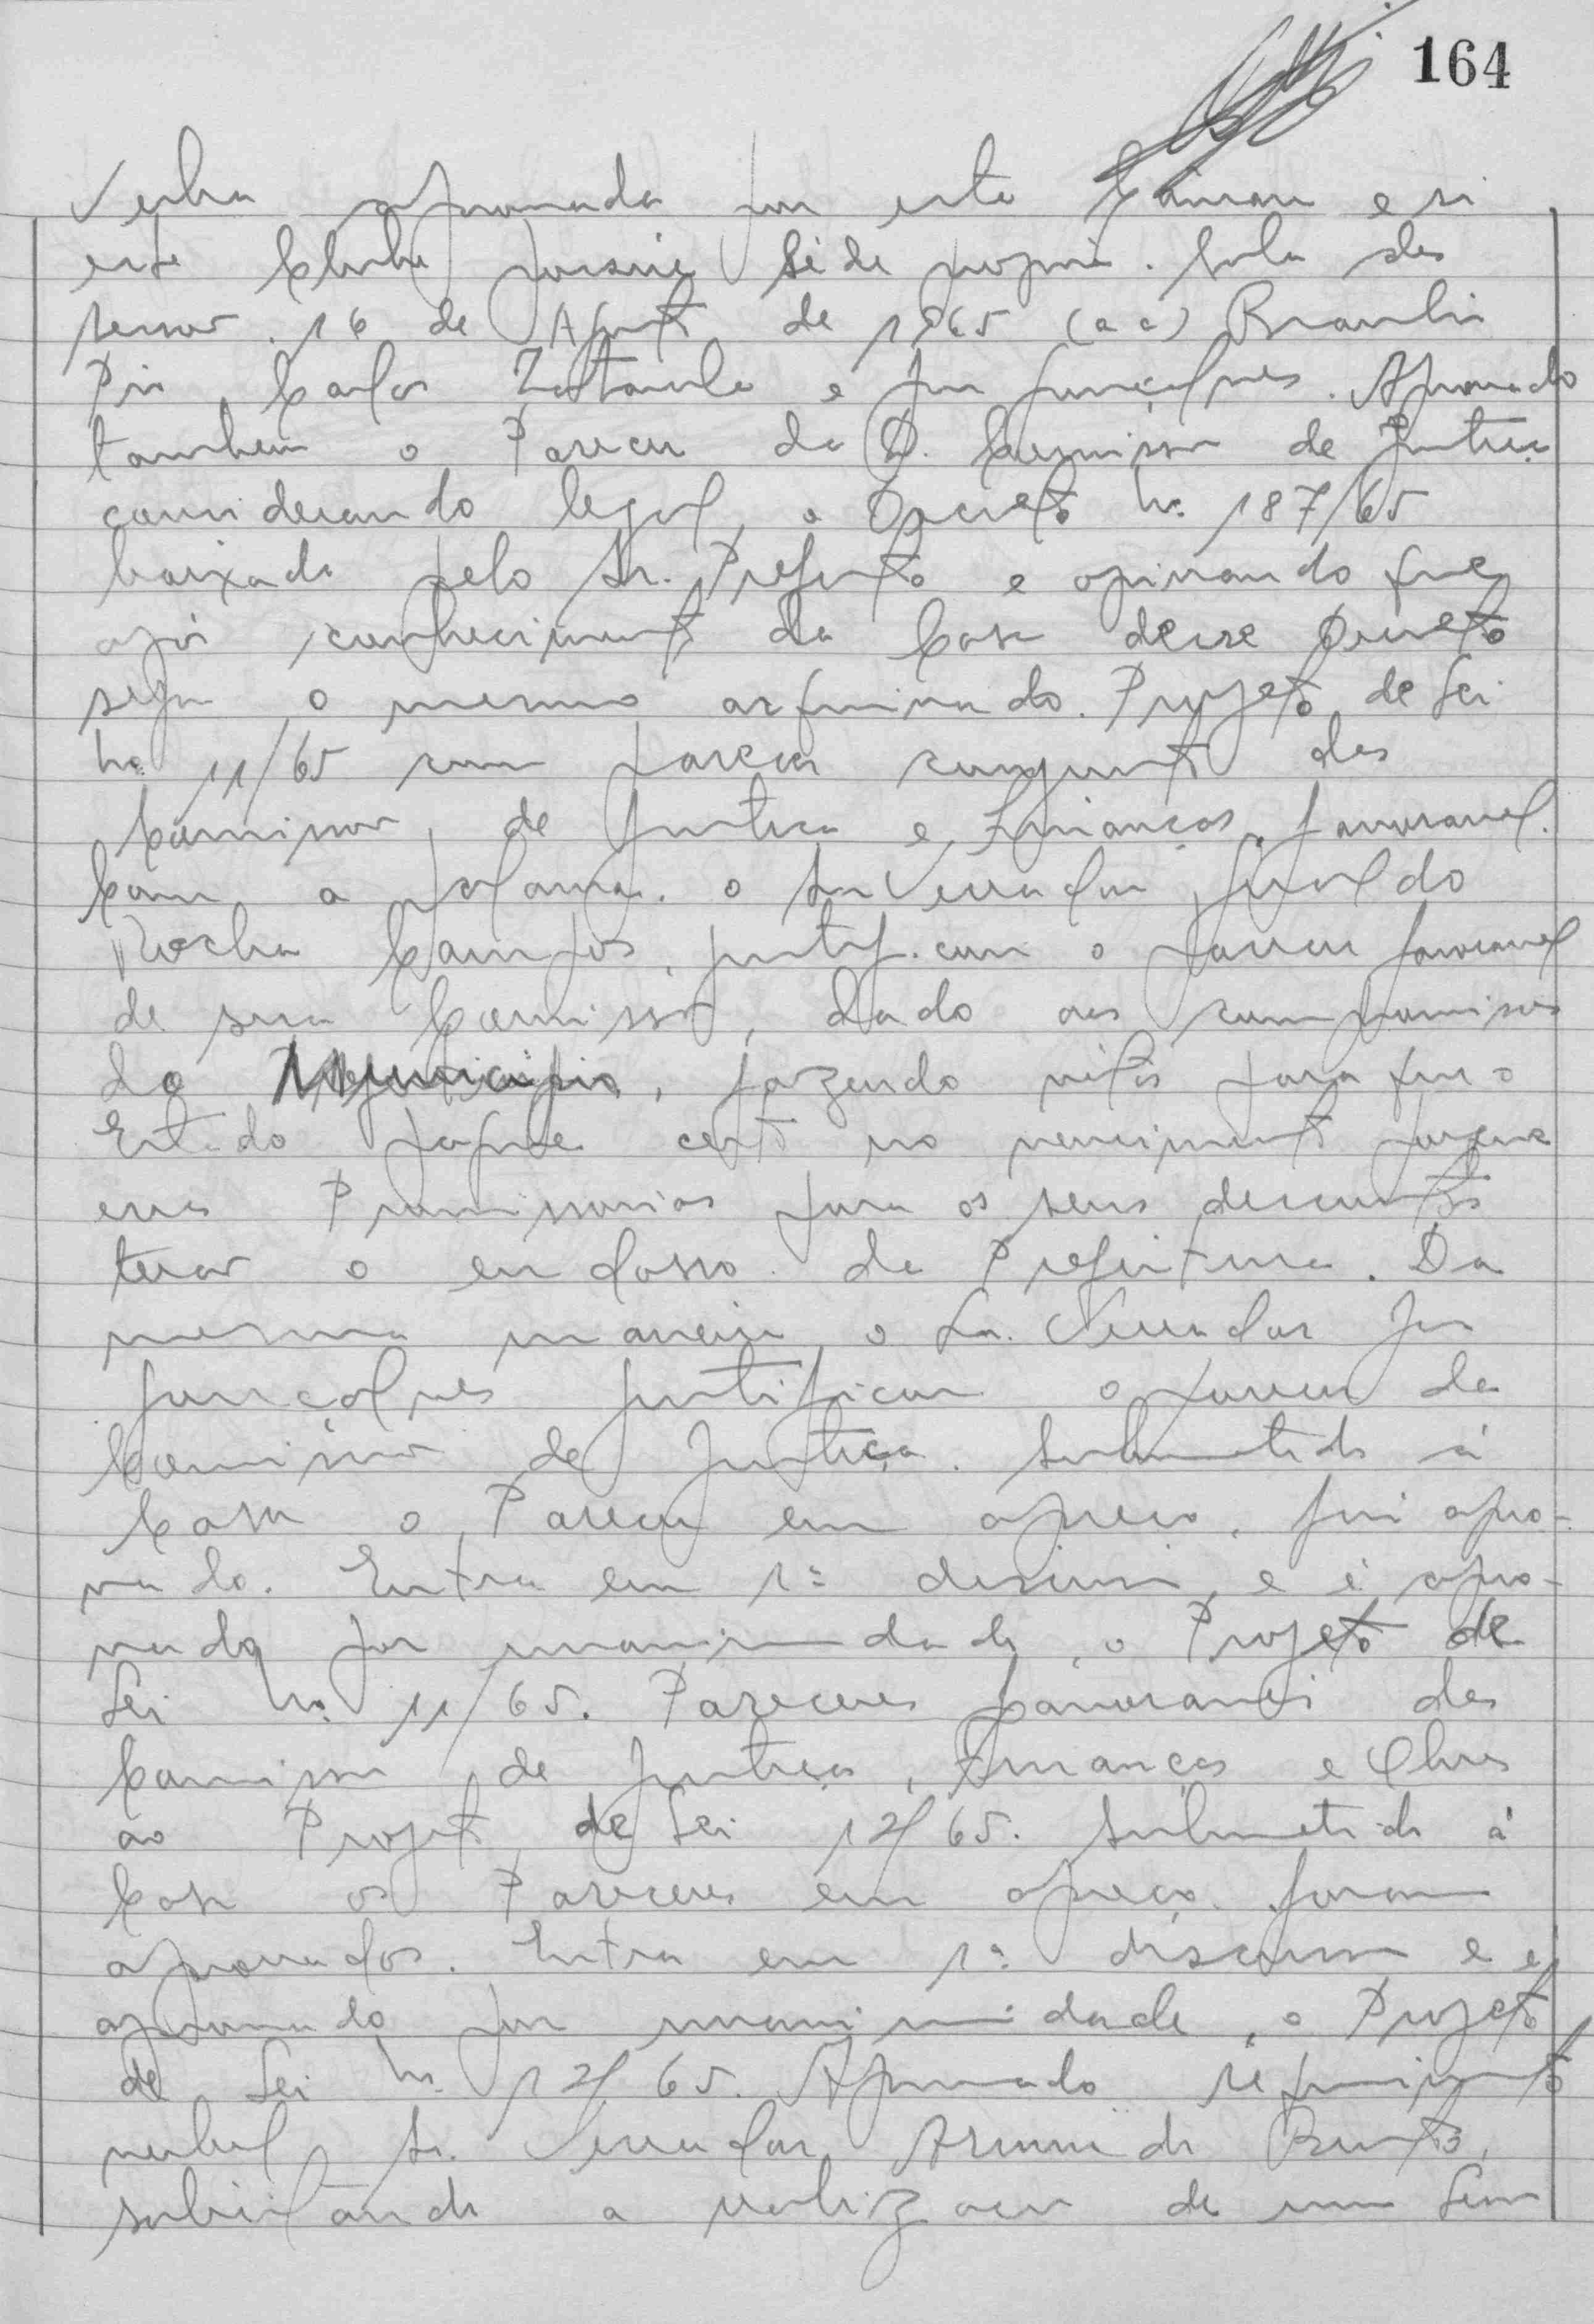 164
Verba aprovada por esta Câmara e si
este Clube possui séde propria. Sala das
sessões. 16 de Agosto de 1965 (a a) Braulio
Pio Carlos e José Gonçalves. Aprovado
tambem o Parecer da D. Comissão de Justiça
considerando legal, o Decreto nº 187/65
baixado pelo Sr. Prefeito e opinando que
após conhecimento da Casa desse Decreto
seja o mesmo arquivado. Projeto de Lei
nº 11/65 com parecer conjunto das
Comissões de Justiça e Finanças, favoravel.
Com a palavra o Sr Vereador Geraldo
Rocha Campos, justificou o parecer favoravel
de sua Comissão, dado aos compromissos
do Municipio, fazendo votos para que o
Estado pague certo no vencimento porque
essas Promissorias para os seus descontos
terão o endosso da Prefeitura. Da
mesma maneira o Sr. Vereador José
Gonçalves justificou o parecer da
Comissão de Justiça. Submetido á
Casa o Parecer em apreço, foi apro-
vado. Entra em 1ª discussão, e é apro-
vado por unanimidade, o Projeto de
Lei nº 11/65. Pareceres favoraveis das
Comissões de Justiça, Finanças e Obras
ao Projeto de Lei 12/65. Submetido á
Casa os Pareceres em apreço foram
aprovados. Entra em 1ª discussão e é
aprovado por unanimidade, o Projeto
de Lei nº 12/65. Aprovado requerimento
verbal Sr. Vereador Bento,
solicitando a realização de uma Sessão